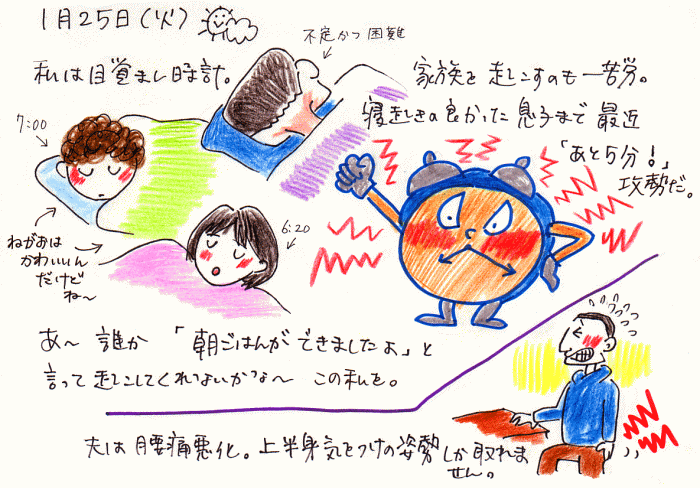 1月25日(火)
不定かつ困難
私は目覚まし時計。
家族を起こすのも一苦労。
寝起きの良かった息子まで最近
「あと5分!」
攻勢だ。
7:00
6:20
ねがおは
かわいいん
だけど
ね〜
あ〜 誰か 「朝ごはんができましたよ」と
言って起こしてくれないかな〜 この私を。
夫は腰痛悪化。上半身気をつけの姿勢しか取れま
せん。